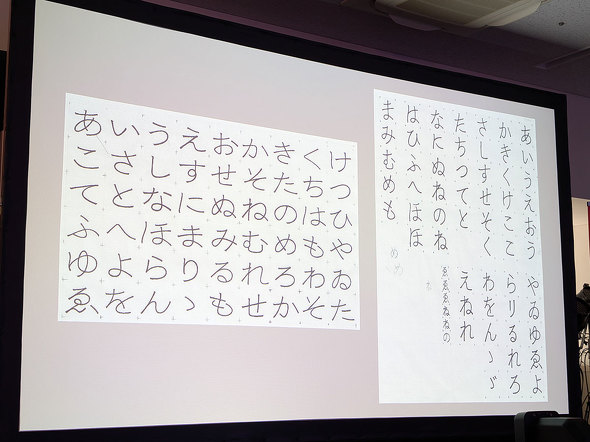 あいうえおかきくけ
こさしすせそたちつ
てとなにぬねのはひ
ふへほまみむめもや
ゆよらりるれろわゐ
ゑをんゝもせかそた
あいうえおう
かきくけここ
さしすせそく
たちつてと
なにぬねのね
はひふへほほ
まみむめも
めめ
やゐゆゑよ
らりるれろ
わをんゝゞ
えねれ
ゑゑゑねねの
れ